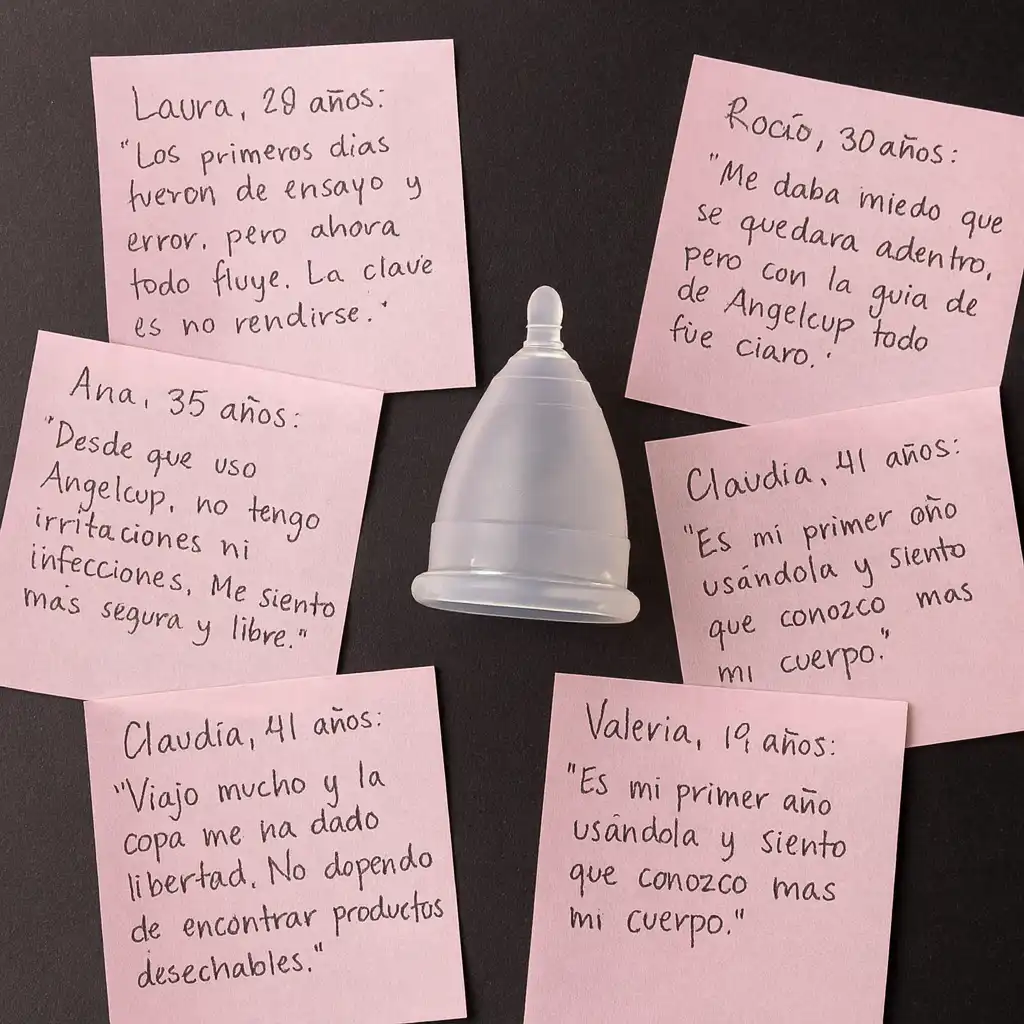 Laura, 29 años:
"Los primeros dias
fueron de ensayo y
error. pero ahora
todo fluye. La clave
es no rendirse."
Rocío, 30 años:
"Me daba miedo que
se quedara adentro,
pero con la guia de
de Angelcup todo
fue ciaro.'
Ana, 35 años:
"Desde que uso
Angelcup, no tengo
irritaciones ni
infecciones, Me siento
mas segura y libre."
Claudia, 41 años:
"Es mi primer oño
usándola y siento
que conozco mas
mi cuerpo."
Claudia, 41 años:
"Viajo mucho y la
copa me ha dado
libertad. No dopendo
de encontrar productos
desechables."
Valeria, 19 años:
"Es mi primer año
usándola y siento
que conozco mas
mi cuerpo."